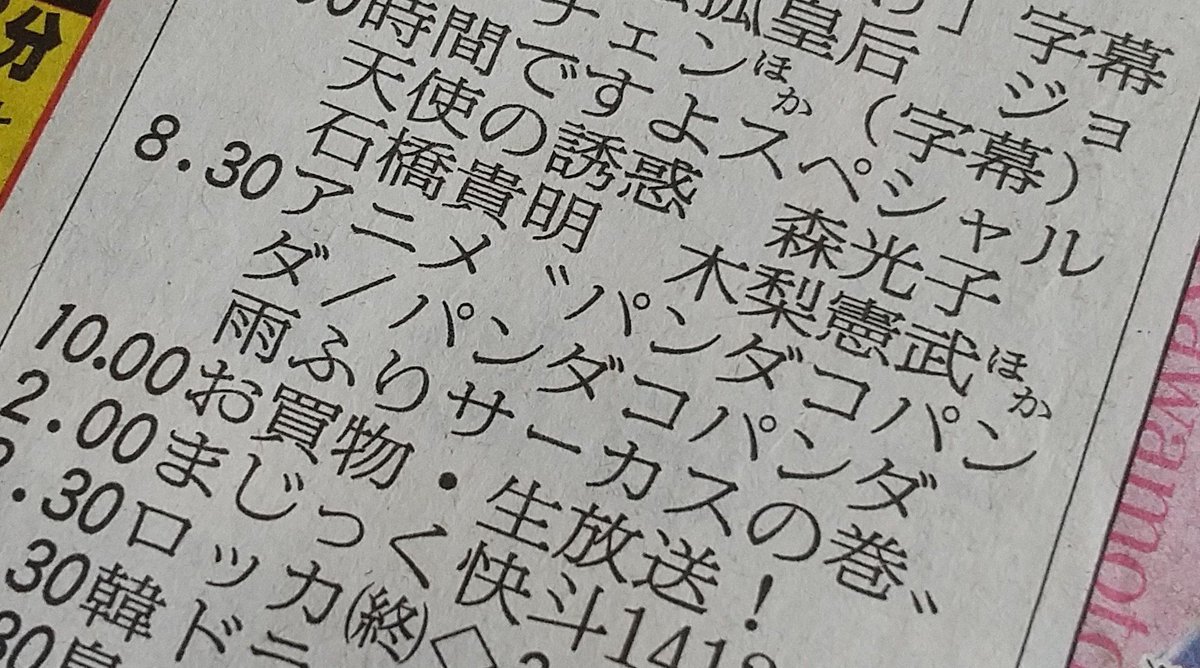 字幕
皇后（字幕）ジョ
チェンほか
時間ですよスペシャル
天使の誘惑 森光子
石橋貴明 木梨憲武ほか
8.30アニメ〝パンダコパン
ダ／パンダコパンダ
雨ふりサーカスの巻〟
10.00お買物・生放送！
2.00まじっく快斗141
.30ロッカ㈸◇
30韓ドラ
30
分